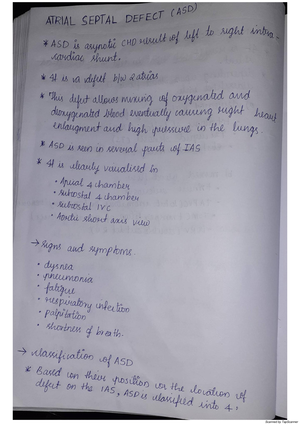 ATRIAL SEPTAL DEFECT (ASD)
* ASD is aynotic CHD result of left to right intra
cardiac shunt.
* It is a defect b/w 2 atrias
* This defect allows mixing of oxygenated and
deoxygenated blood eventually causing right heart
enlargment and high pressure in the lungs.
* ASD is seen in several parts of IAS
* It is clearly visualised in
• Apical 4 chamber
• subcostal 4 chamber
• subcostal IVC
• Aortic short axis view
→ Signs and symptoms
• dysnea
• pneumonia
• fatigue
• respiratory infection
• palpitation
• shortness of breath.
→ classification of ASD
* Based on their position or the location of
defect on the IAS, ASD is classified into 4:
Scanned by TapScanner